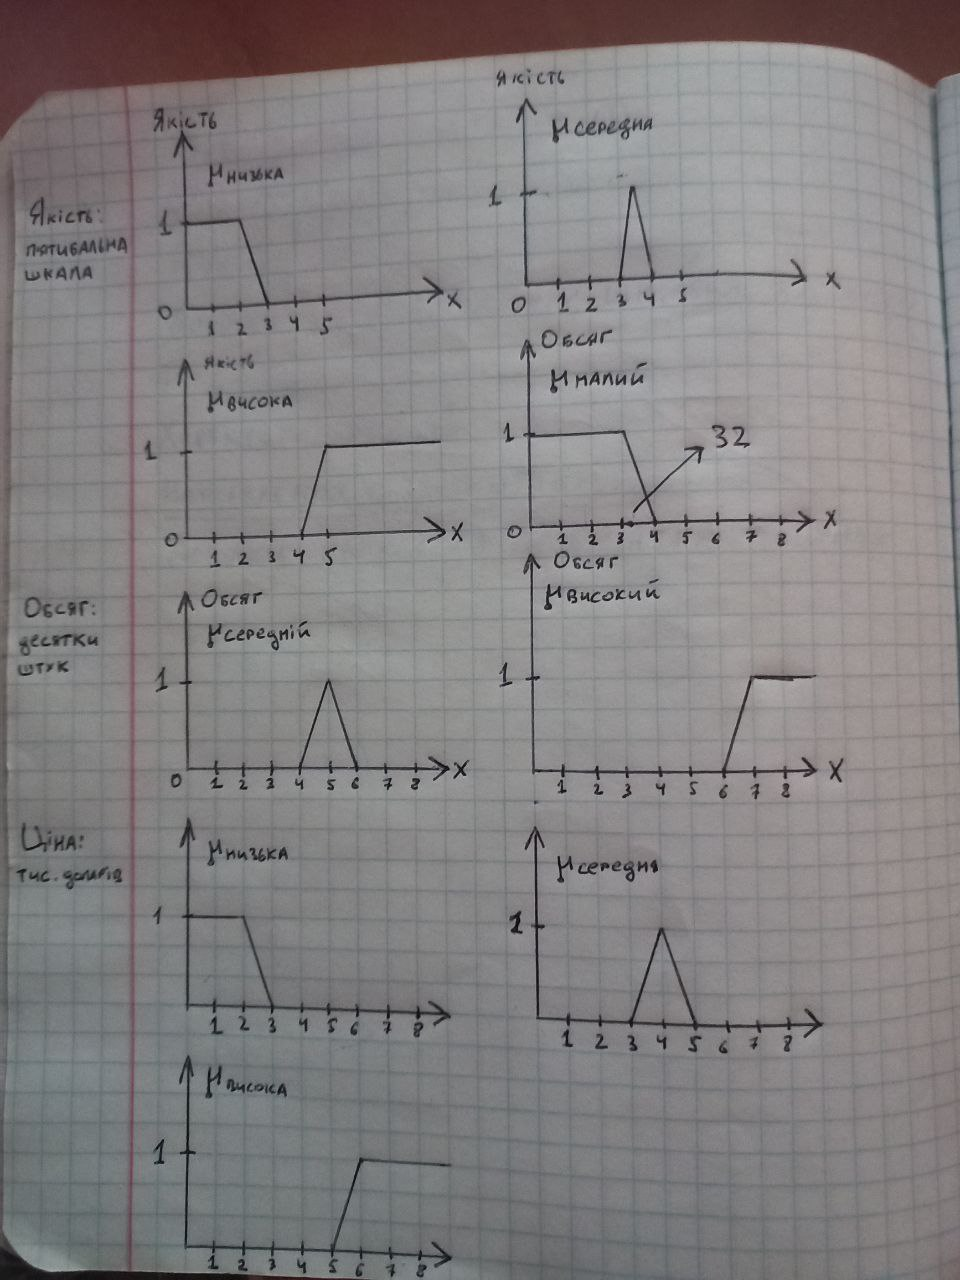 Якість
μ низька
1
0
1 2 3 4 5
x
Якість
μ середня
1
0
1 2 3 4 5
x
Якість:
п'ятибальна
шкала
Якість
μ висока
1
0
1 2 3 4 5
x
Обсяг
μ малий
1
32
0
1 2 3 4 5 6 7 8
x
Обсяг:
десятки
штук
Обсяг
μ середній
1
0
1 2 3 4 5 6 7 8
x
Обсяг
μ високий
1
1 2 3 4 5 6 7 8
x
Ціна:
тис. доларів
μ низька
1
1 2 3 4 5 6 7 8
μ середня
1
1 2 3 4 5 6 7 8
μ висока
1
1 2 3 4 5 6 7 8